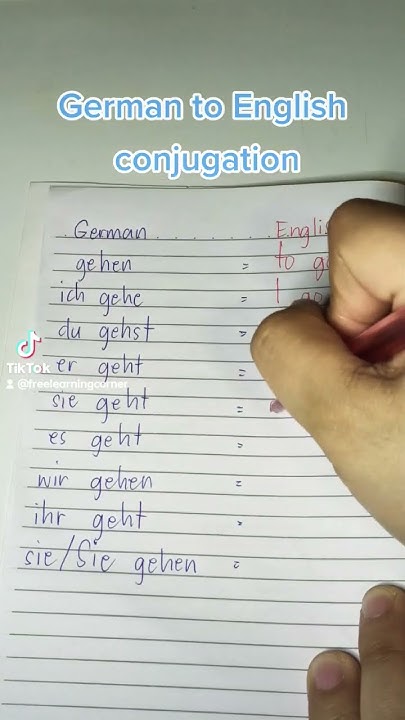 German to English
conjugation
German . . . . . . . . . . English
gehen = to go
ich gehe = I go
du gehst =
er geht =
TikTok
@freelearningcorner
sie geht =
es geht =
wir gehen =
ihr geht =
sie/Sie gehen =